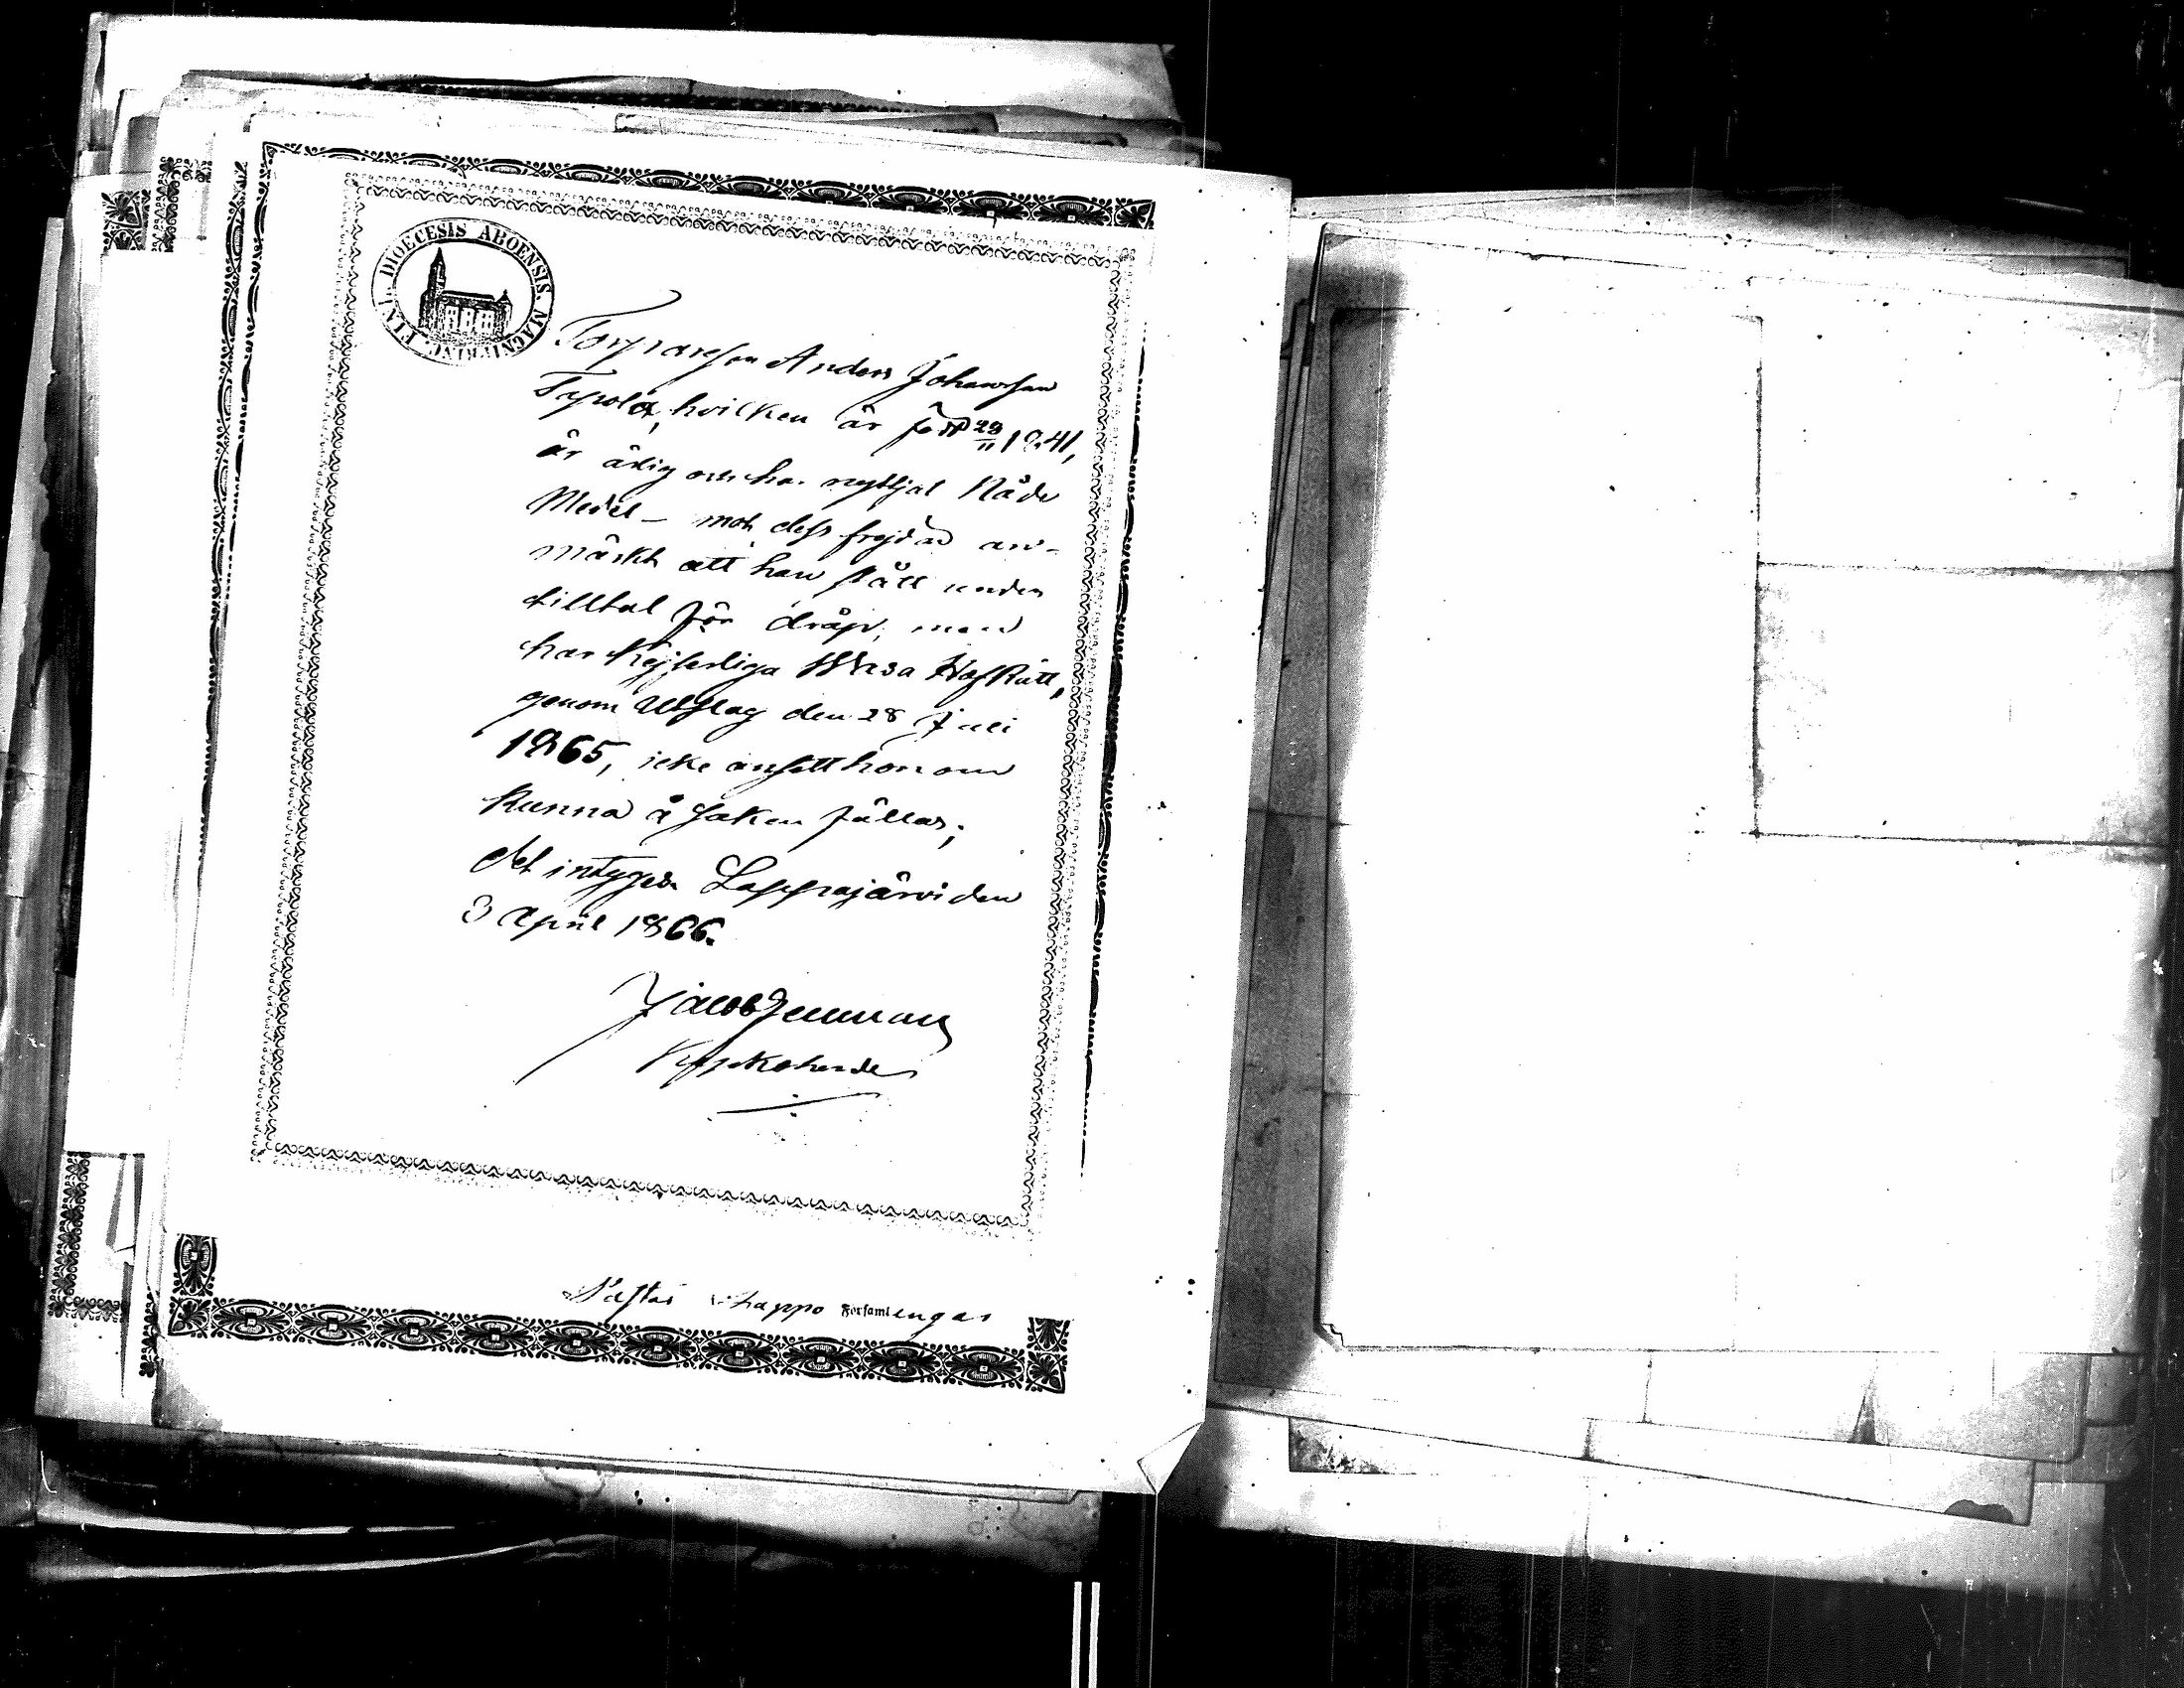 DIOECESIS ABOENSIS. MAGNI PRINC. FINL.
Torpareson Anders Johansson
Typola, hvilken är född 29/11 1841,
är ärlig och har nyttjat Nåde
Medel – mot dess frejd är an-
märkt att han stått under
tilltal för dråp; men
har Kejserliga Wasa HofRätt,
genom Utslag den 28 Juli
1865, icke ansett honom
kunna å saken fällas;
det intygas Lappajärvi den
3 April 1866.
Jacob
Kyrkoherde
Lappo Församlingar